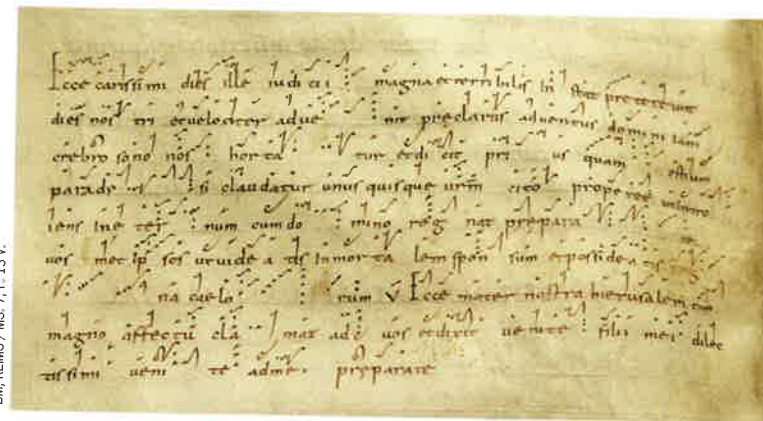 Ecce carissimi dies ille iudicii magna et terribilis instat pretereunt
dies nostri et velociter advenit preclarus adventus domini iam
crebro sono nos hortatur et dicit prius quam ostium
parade si claudatur unus quisque urm cito properet
iens in eternum cum domino regnat prepara te
vos met ipsos ut videatis inmortalem sponsum et possideatis
na caelorum V Ecce mater nostra hierusalem cum
magno affectu clamat ad vos et dixit venite filii mei dilec
tissimi venite ad me preparate